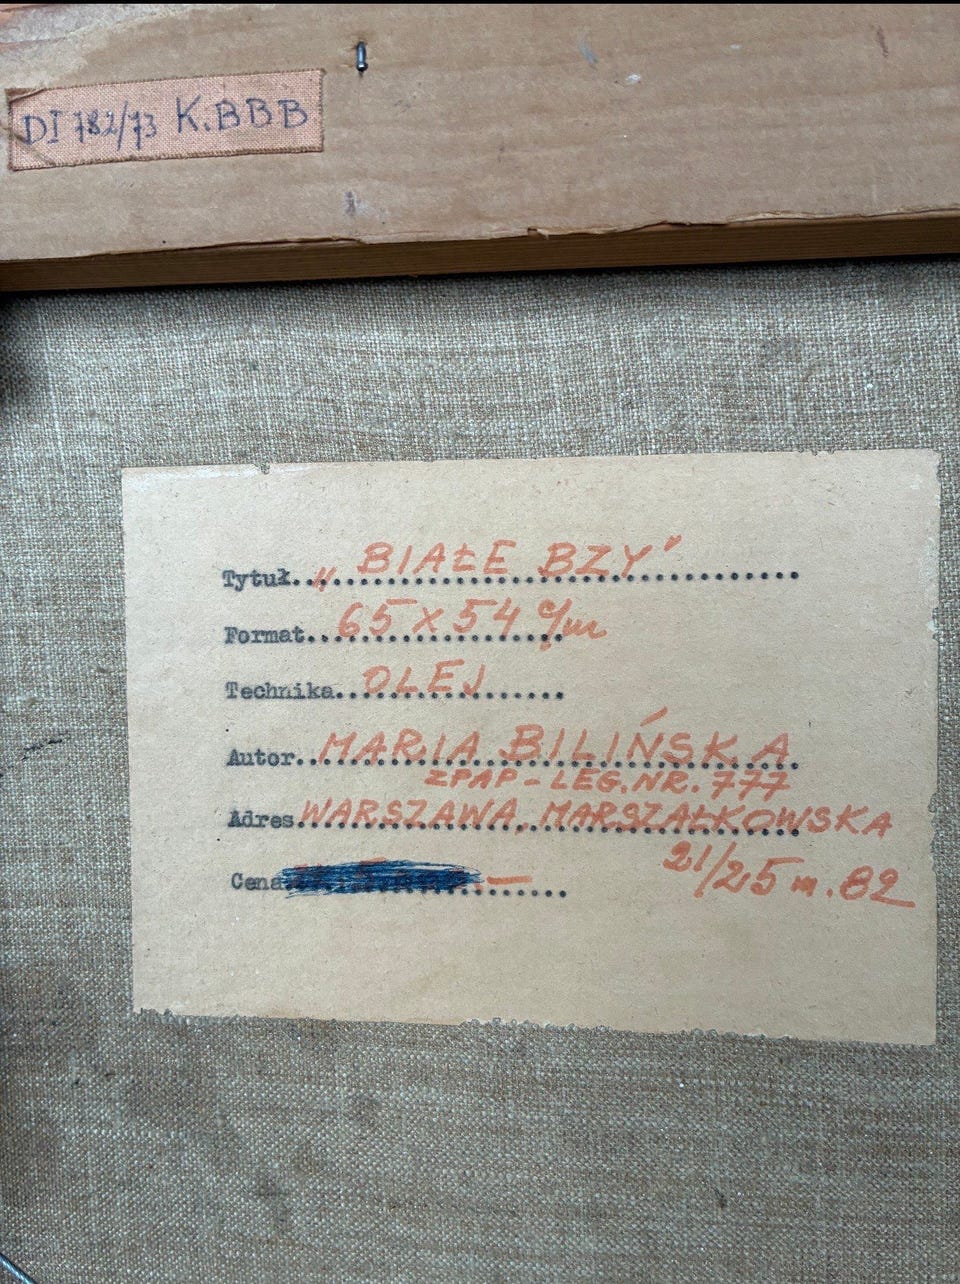 DI 782/73 K.BBB
Tytuł..."BIAŁE BZY"
Format..65 X 54 c/m
Technika..OLEJ
Autor..MARIA BILIŃSKA
ZPAP - LEG. NR. 777
Adres WARSZAWA, MARSZAŁKOWSKA
21/25 m. 82
Cena